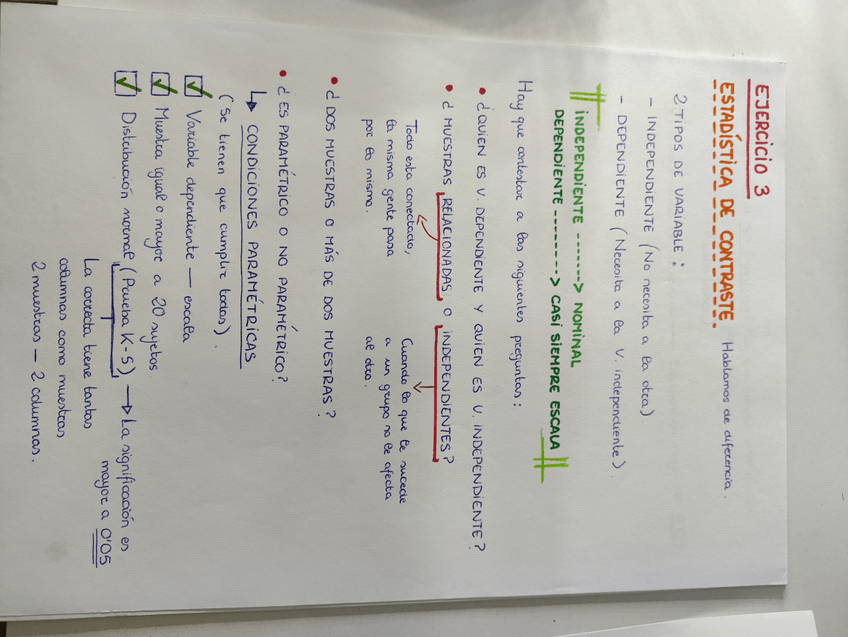 EJERCICIO 3
ESTADÍSTICA DE CONTRASTE. Hablamos de diferencia.
2 TIPOS DE VARIABLE:
- INDEPENDIENTE (No necesita a la otra)
- DEPENDIENTE (Necesita a la V. independiente).
INDEPENDIENTE -------> NOMINAL
DEPENDIENTE --------> CASI SIEMPRE ESCALA
Hay que contestar a las siguientes preguntas:
• ¿QUIEN ES V. DEPENDIENTE Y QUIEN ES V. INDEPENDIENTE?
• ¿MUESTRAS RELACIONADAS O INDEPENDIENTES?
Todo esta conectado,
la misma gente pasa
por lo mismo.
Cuando lo que le sucede
a un grupo no le afecta
al otro.
• ¿DOS MUESTRAS O MÁS DE DOS MUESTRAS?
• ¿ES PARAMÉTRICO O NO PARAMÉTRICO?
↳ CONDICIONES PARAMÉTRICAS
(Se tienen que cumplir todas).
✓ Variable dependiente — escala
✓ Muestra igual o mayor a 20 sujetos.
✓ Distribución normal (Prueba K-S) → La significación es
mayor a 0'05
La correcta tiene tantas
columnas como muestras
2 muestras - 2 columnas.